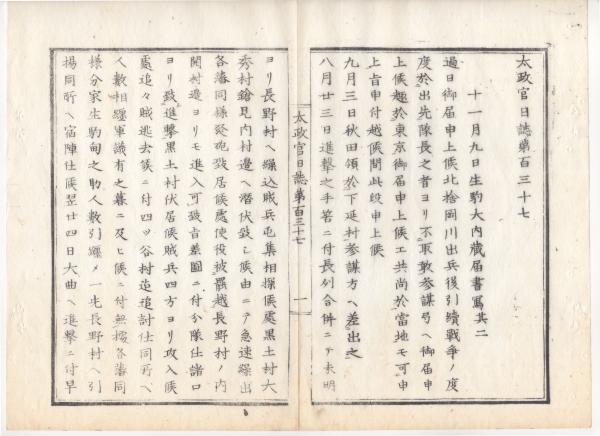 太政官日誌第百三十七
十一月九日生駒大内蔵届書寫其二
過日御届申上候北捨岡川出兵後引續戰爭ノ度
度於出先隊長之者ヨリ不取敢参謀局ヘ御届申
上候趣於東京御届申上候エ共尚於當地モ可申
上旨申付越候間此段申上候
九月三日秋田領於下延村参謀方ヘ差出之
八月廿三日進撃之手筈ニ付長列合併ニテ未明
太政官日誌第百三十七
一
ヨリ長野村ヘ繰込賊兵屯集相探候處黒土村大
秀村鎗見内村邊ヘ潜伏致シ候由ニテ急速繰出
各藩同様發砲致居候處使役披羆越長野村ノ内
開村邊ヨリモ進入可致旨差圖ニ付分隊仕諸口
ヨリ致進撃黒土村伏居候賊兵四方ヨリ攻入候
處追々賊逃去候ニ付四ツ谷村迄追討仕同所ヘ
人數相纏軍議有之暮ニ及ヒ候ニ付無據各藩同
様分家生駒甸之助人數引纏メ一先長野村ヘ引
揚同所ヘ宿陣仕候翌廿四日大曲ヘ進撃ニ付早